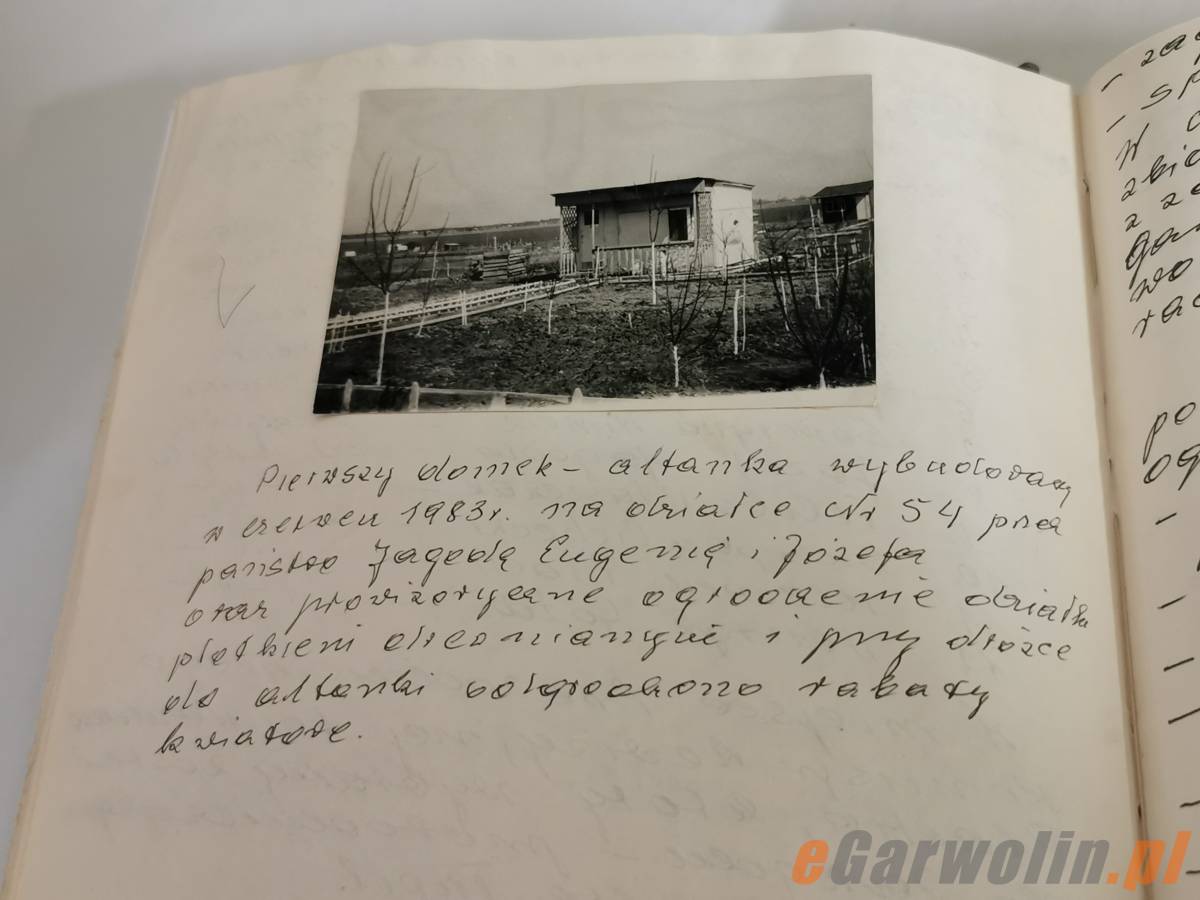 Pierwszy domek - altanka wybudowany
w czerwcu 1983r. na działce Nr 54 przez
państwo Jagodę Eugenię i Józefa
oraz prowizoryczne ogrodzenie działki
płotkiem drewnianym i przy dróżce
do altanki odgrodzono rabaty
kwiatowe.
- za
- sp
w
zbio
z ze
wo
po
og
eGarwolin.pl